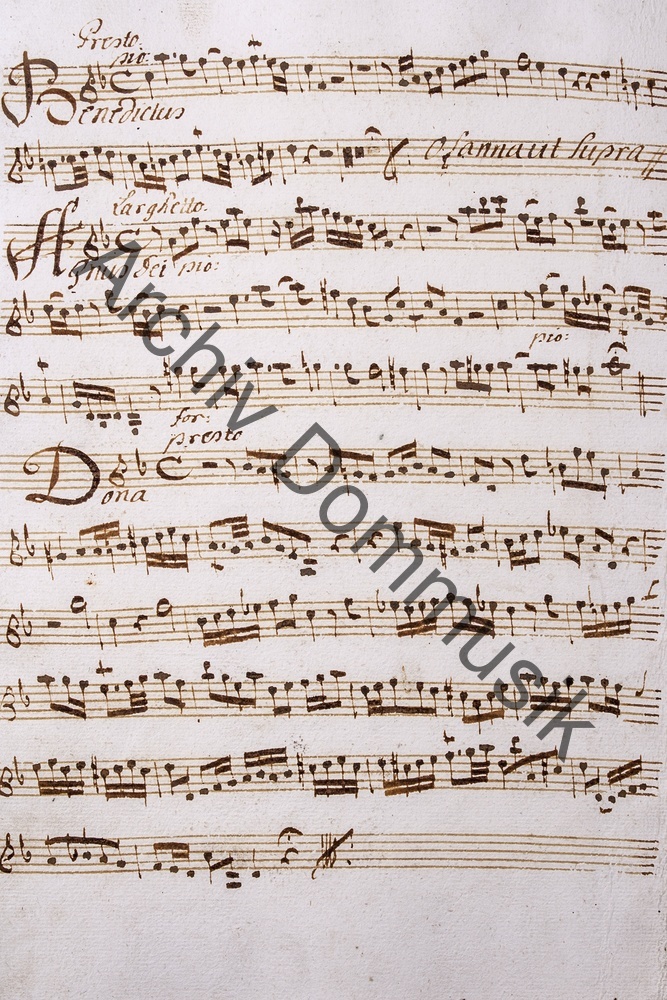 Presto
pio:
Benedictus
Osanna ut supra
Larghetto
Agnus dei pio:
pio:
for:
presto
Dona
Archiv Dommusik